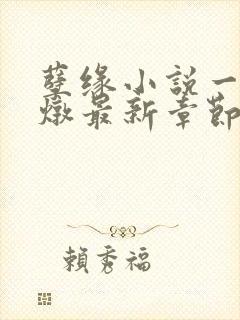 孽缘小說一
燉最新章節
賴秀福